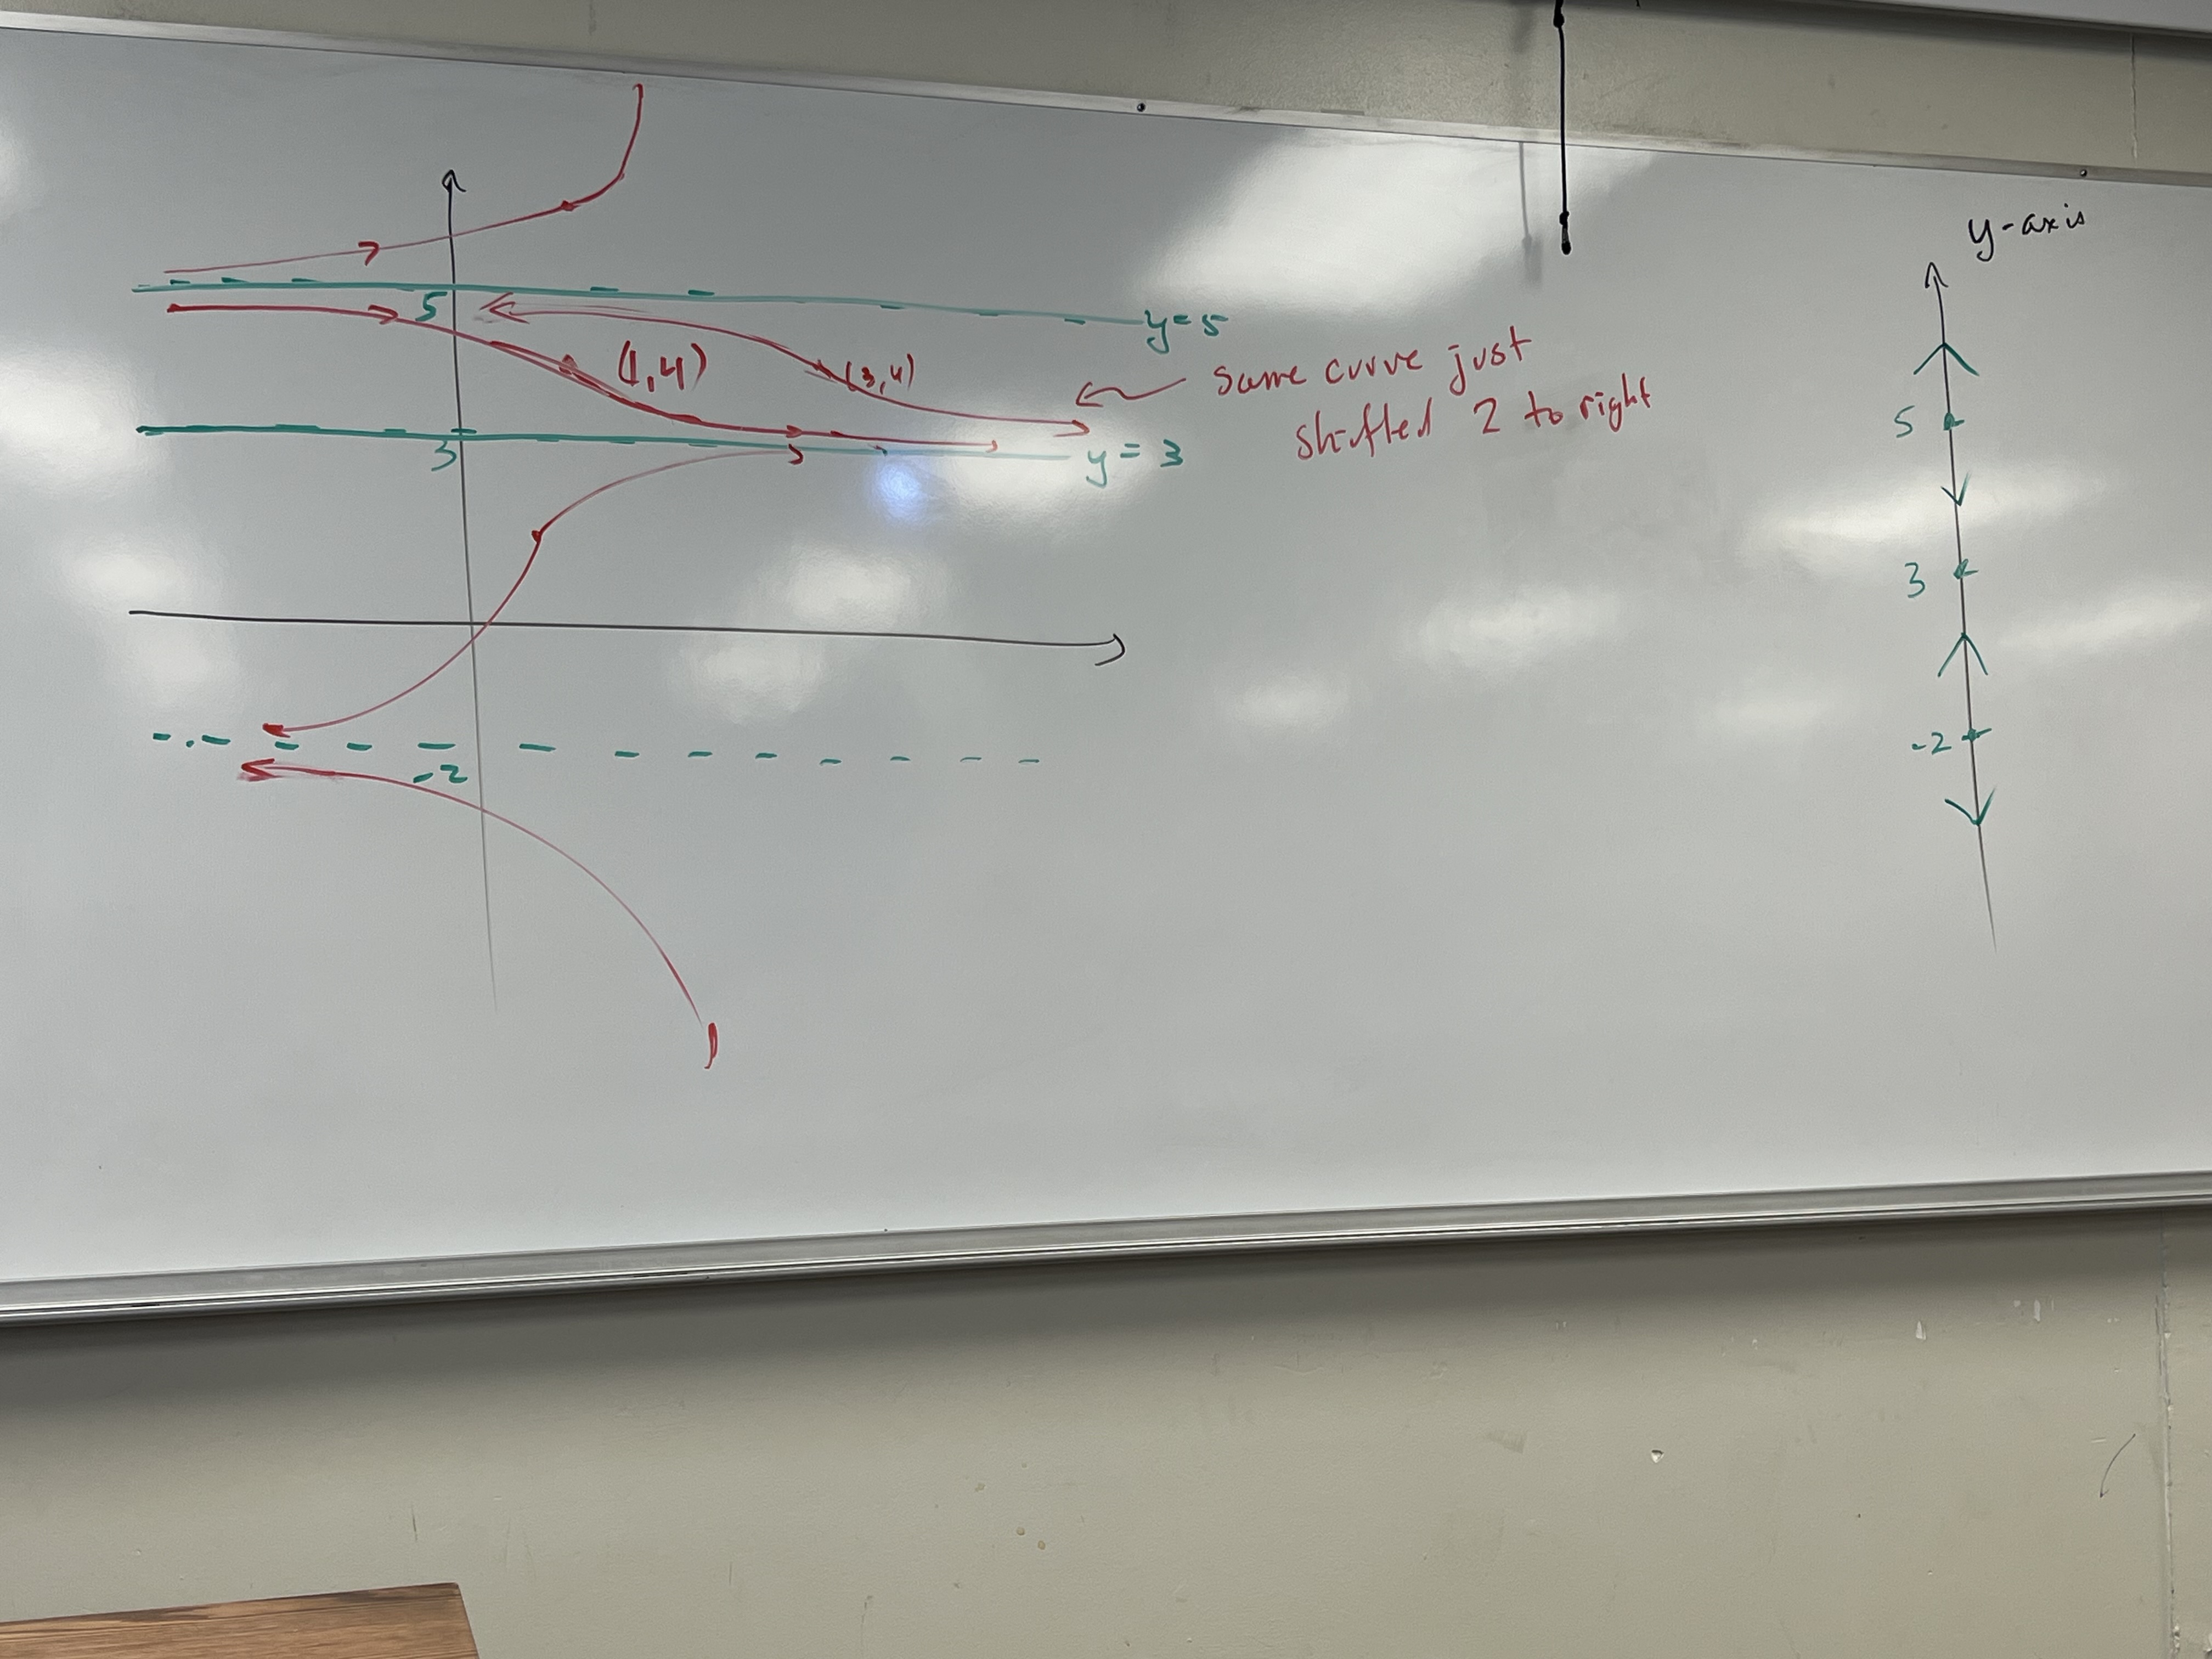 5
y=5
(1,4)
(3,4)
same curve just
shifted 2 to right
3
y = 3
-2
y-axis
5
3
-2